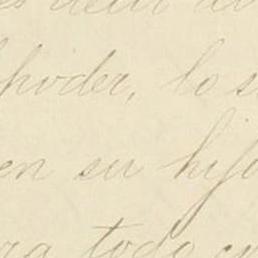 es decir
poder, lo s
en su hijo
ra todo